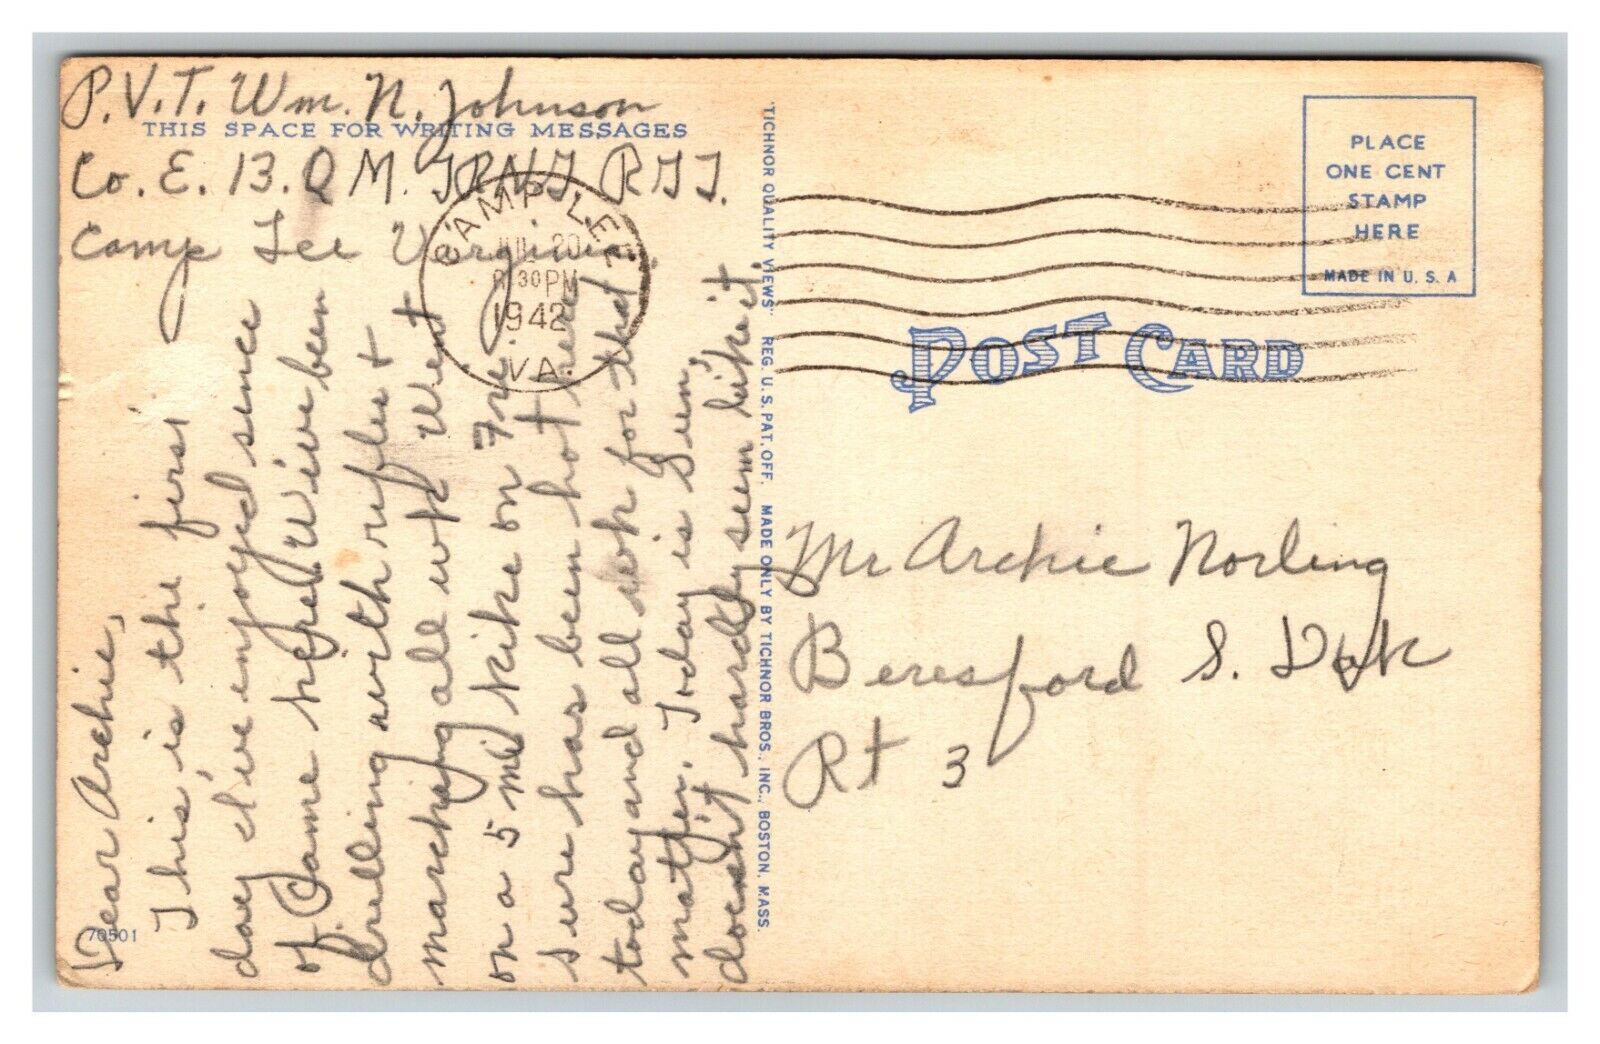 P.V.T. Wm. N. Johnson
THIS SPACE FOR WRITING MESSAGES
Co. E. 13. Q M. TRNG. RGT.
Camp Lee Virginia
CAMP LEE
JUL 20
30 PM
1942
VA.
Dear Archie,
This is the first
day I've enjoyed since
I came here. We've been
drilling with rifles +
marching all wk. Went
on a 5 mi hike on Fri.
sure has been hot here
today and all wk for that
matter. Today is Sun,
doesn't hardly seem like it.
70501
"TICHNOR QUALITY VIEWS" REG. U.S. PAT. OFF. MADE ONLY BY TICHNOR BROS. INC., BOSTON, MASS.
PLACE
ONE CENT
STAMP
HERE
MADE IN U. S. A
POST CARD
Mr Archie Norling
Beresford S. Dak
Rt 3